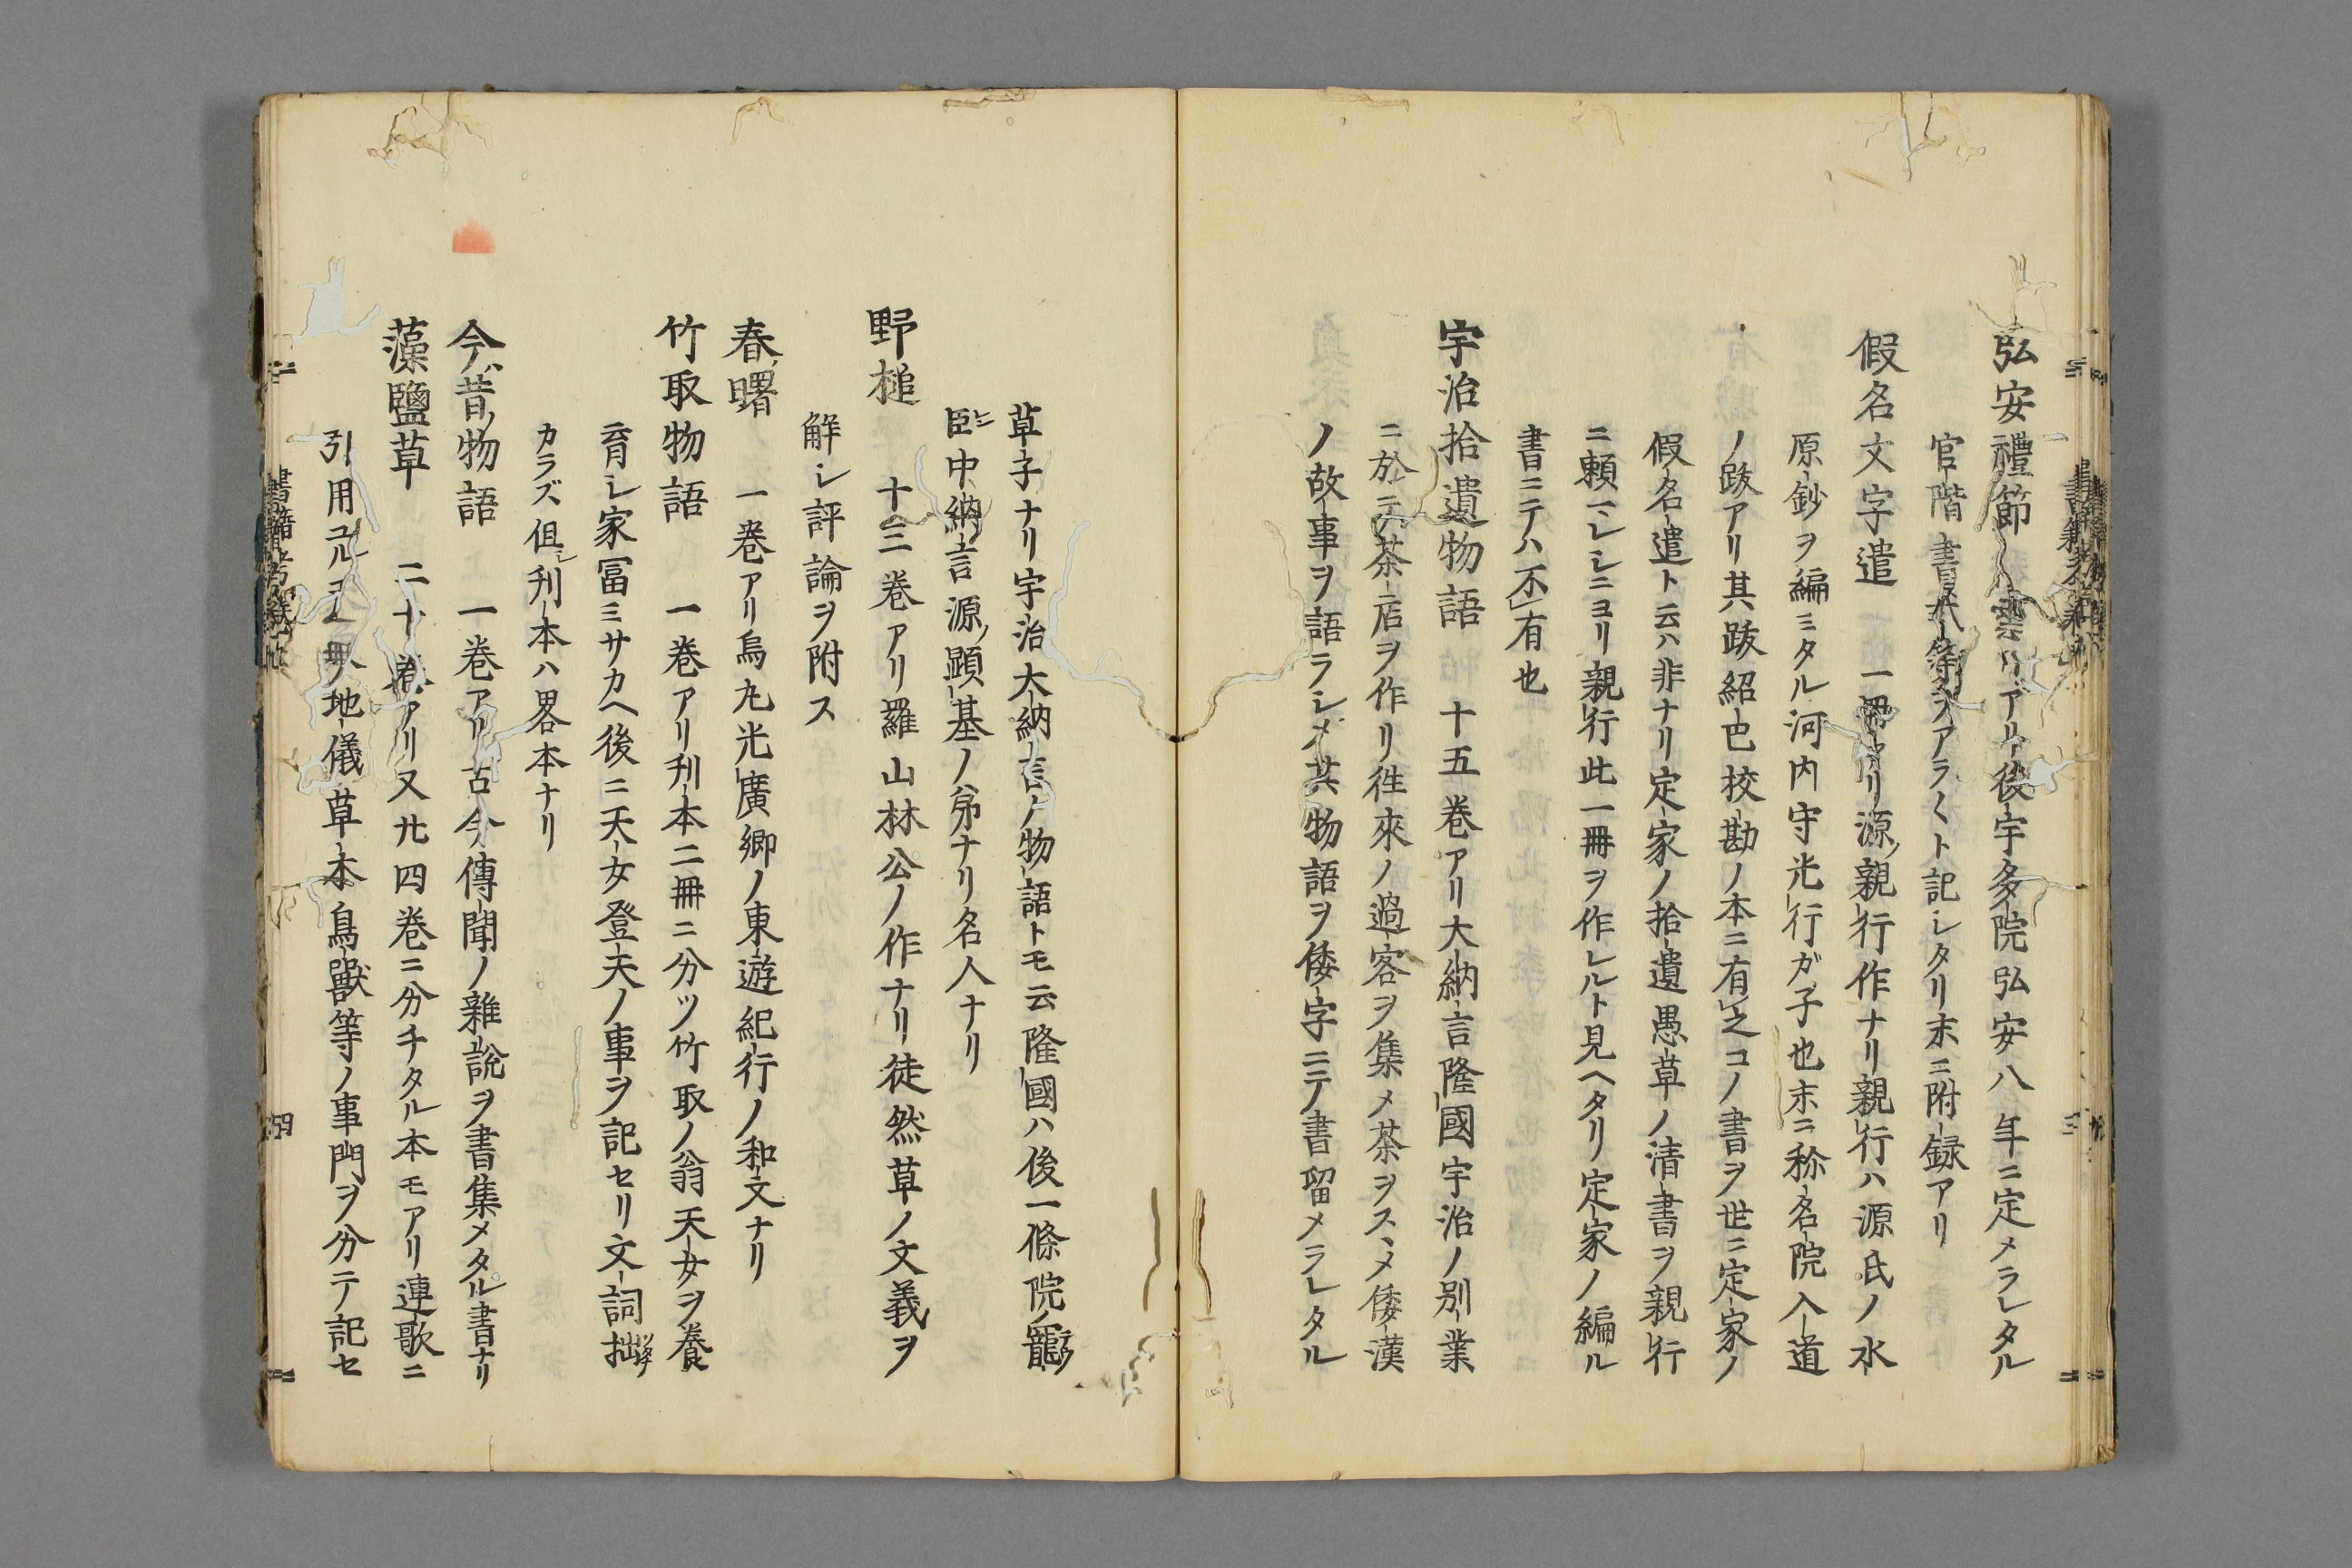 弘安禮節 一巻アリ後宇多院弘安八年ニ定メラレタル
官階書札等ヲアラ〱ト記シタリ末ニ附録アリ
假名文字遣 一冊アリ源ノ親行作ナリ親行ハ源氏ノ水
原鈔ヲ編ミタル河内守光行ガ子也末ニ称名院入道
ノ跋アリ其跋紹巴校勘ノ本ニ有之コノ書ヲ世ニ定家ノ
假名遣ト云ハ非ナリ定家ノ拾遺愚草ノ清書ヲ親行
ニ頼マレシニヨリ親行此一冊ヲ作レルト見ヘタリ定家ノ編ル
書ニテハ不有也
宇治拾遺物語 十五巻アリ大納言隆國宇治ノ別業
ニ於テ茶店ヲ作リ往來ノ過客ヲ集メ茶ヲスヽメ倭漢
ノ故事ヲ語ラシメ其物語ヲ倭字ニテ書留メラレタル
草子ナリ宇治大納言ノ物語トモ云隆國ハ後一條院ノ寵
臣ニ中納言源ノ顕基ノ弟ナリ名人ナリ
野槌 十三巻アリ羅山林公ノ作ナリ徒然草ノ文義ヲ
解シ評論ヲ附ス
春ノ曙 一巻アリ烏丸光廣卿ノ東遊紀行ノ和文ナリ
竹取物語 一巻アリ刋本二冊ニ分ツ竹取ノ翁天女ヲ養
育シ家冨ミサカヘ後ニ天女登天ノ事ヲ記セリ文詞拙
カラズ但シ刋本ハ畧本ナリ
今ハ昔ノ物語 一巻アリ古今傳聞ノ雑説ヲ書集メタル書ナリ
藻鹽草 二十巻アリ又廿四巻ニ分チタル本モアリ連歌ニ
引用ユル 地儀草木鳥獣等ノ事門ヲ分テ記セ